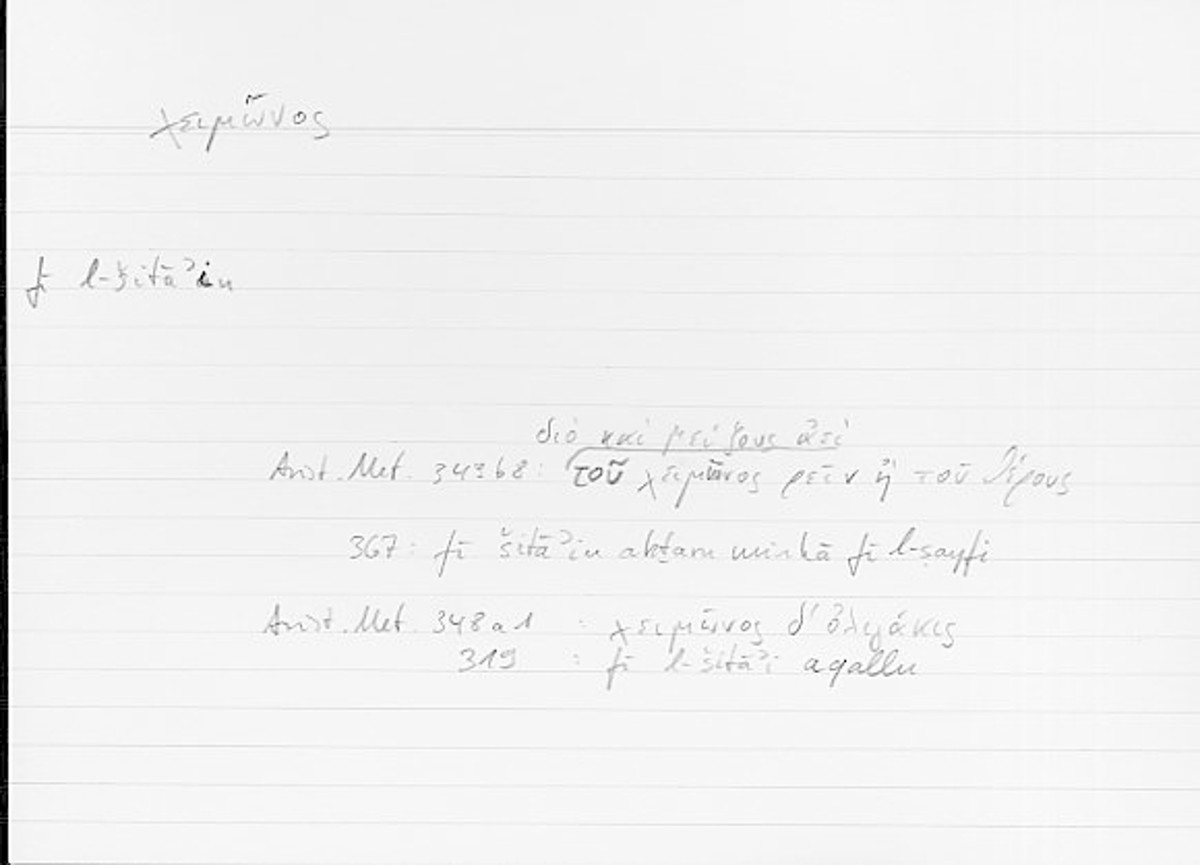 χειμῶνος
fī l-šitāʾin
διὸ καὶ μείζους ἀεὶ
Arist. Met. 349b8: τοῦ χειμῶνος ῥεῖν ἢ τοῦ θέρους
367: fī šitāʾin akṯaru minhā fī l-ṣayfi
Arist. Met. 348a1 : χειμῶνος δ' ὀλιγάκις
319 : fī l-šitāʾi aqallu